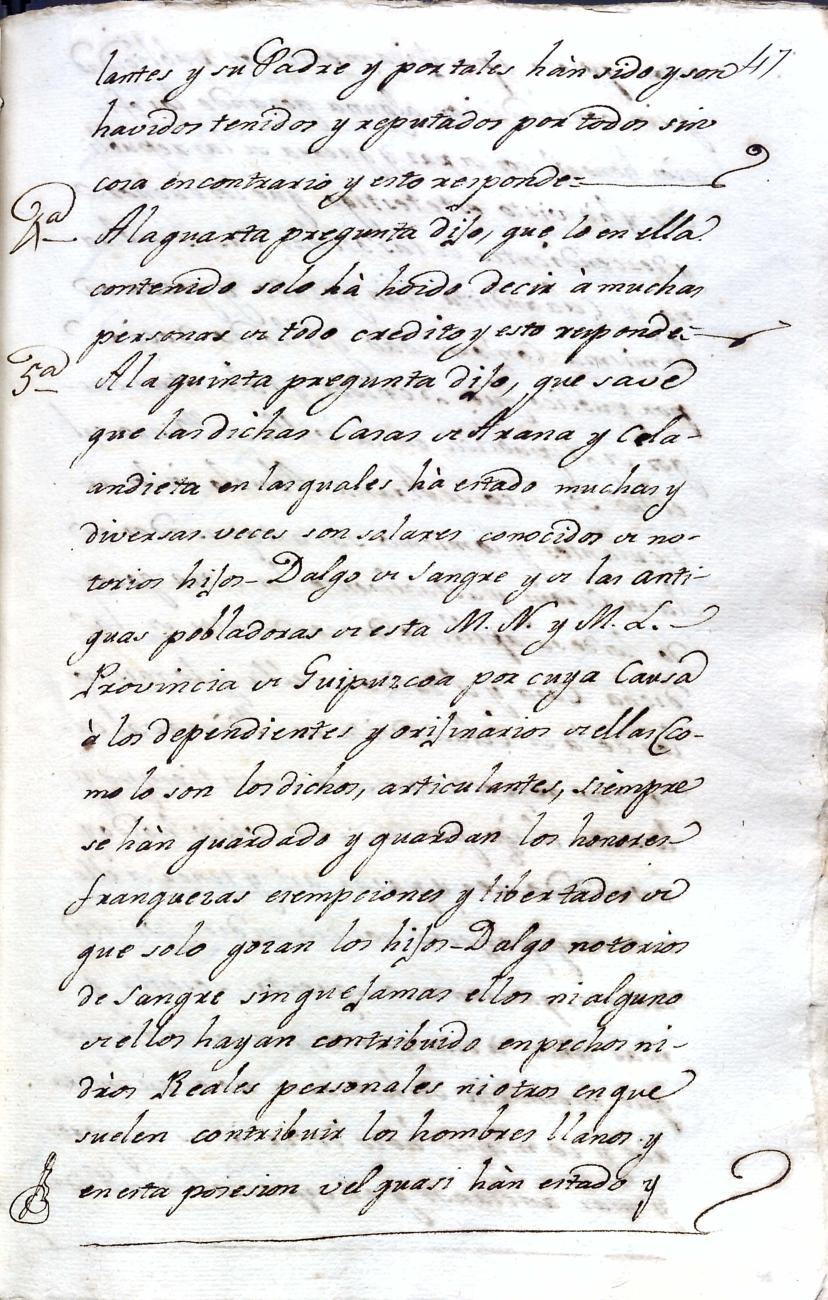 lantes y su Padre y por tales hàn sido y son 47
havidos tenidos y reputados por todos sin
cosa en contrario y esto responde=
4ª A la quarta pregunta dijo, que lo en ella
contenido solo hà hoido decir à muchas
personas de todo credito y esto responde=
5ª A la quinta pregunta dijo, que save
que las dichas Casas de Arana y Cela-
andieta en las quales hà estado muchas y
diversas veces son solares conocidos de no-
torios hijos-Dalgo de Sangre y de las anti-
guas pobladoras de esta M. N. y M. L.
Provincia de Guipuzcoa por cuya Causa
à los dependientes y orijinàrios de ellas (Co-
mo lo son los dichos, articulantes, siempre
sé hàn guàrdado y guardan los honores
franquezas esempciones y libertades de
que solo gozan los hijos-Dalgo notorios
de Sangre sin que jamas ellos ni alguno
de ellos hayan contribuido en pechos ni-
dr̃os Reales personales ni otros en que
suelen contribuir los hombres llanos y
en esta posesion vel quasi hàn estado y